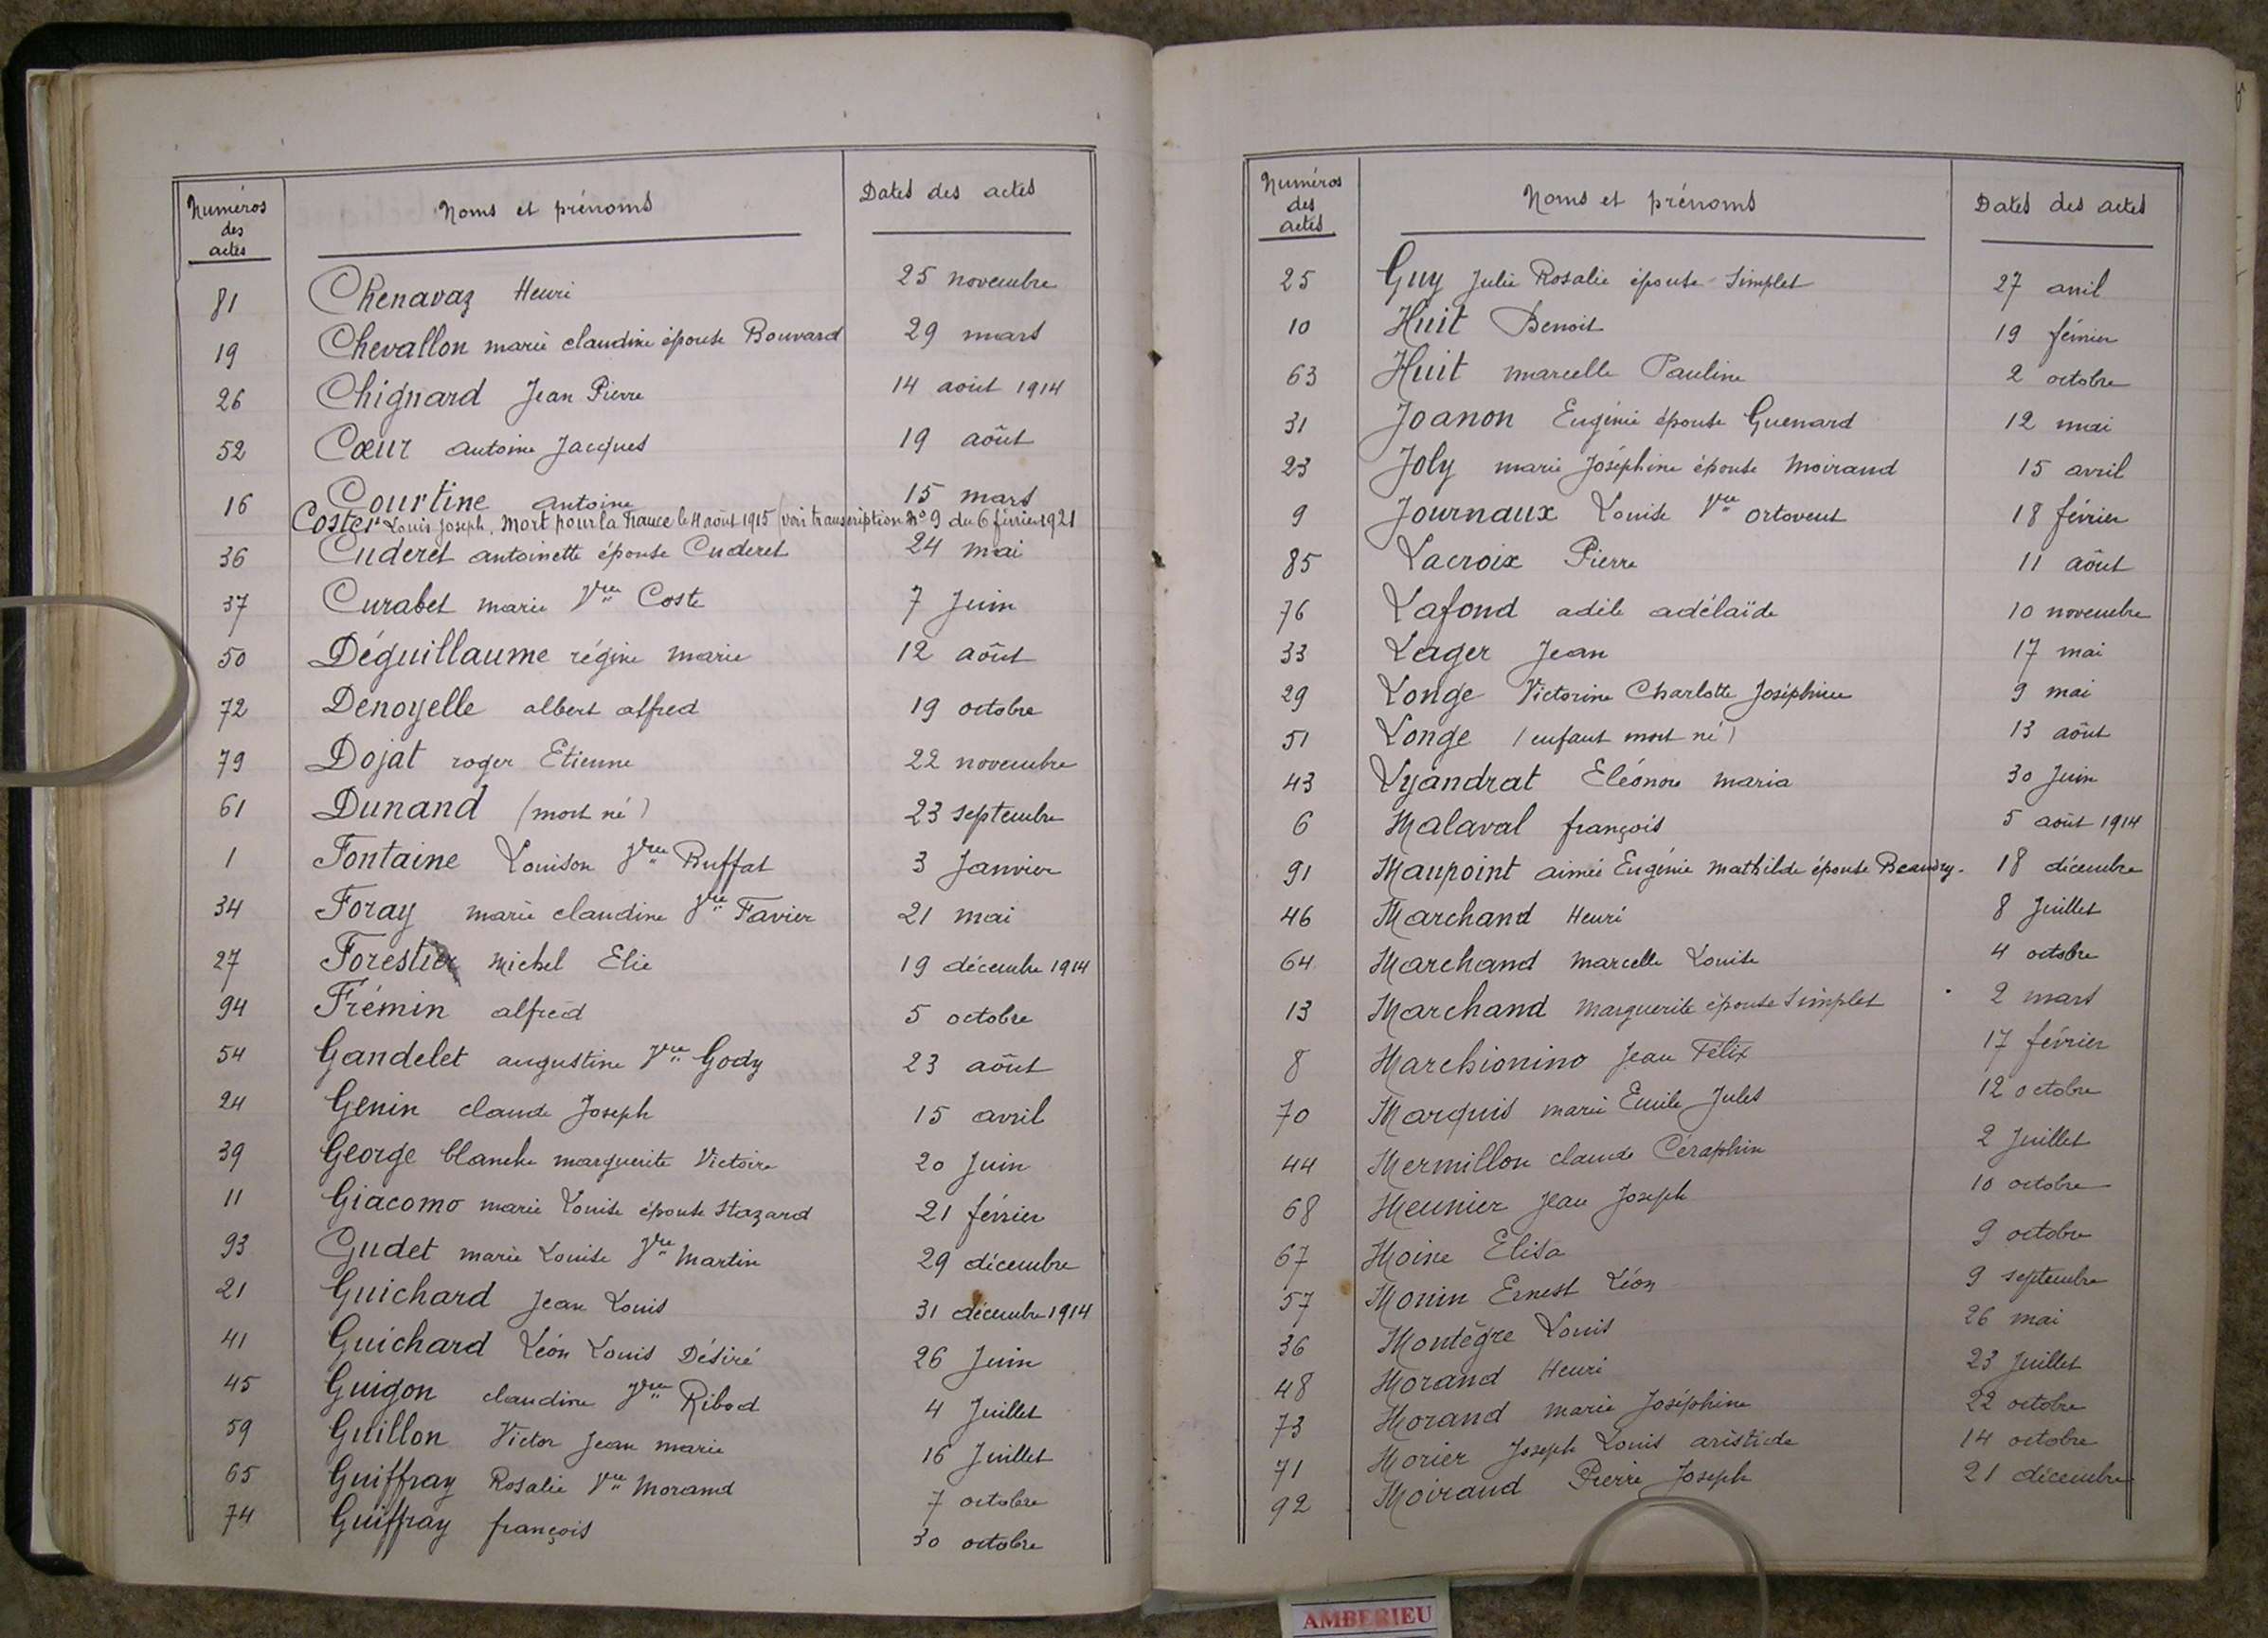 Numéros des actes Noms et prénoms Dates des actes
81 Chenavaz Henri 25 novembre
19 Chevallon marie claudine épouse Bouvard 29 mars
26 Chignard Jean Pierre 14 août 1914
52 Cœur antoine Jacques 19 août
16 Courtine antoine 15 mars
Coster Louis Joseph. Mort pour la France le 4 août 1915 (voir transcription N° 9 du 6 février 1921
36 Cuderet antoinette épouse Cuderet 24 mai
37 Curabet marie Vve Coste 7 Juin
50 Déguillaume régine marie 12 août
72 Denoyelle albert alfred 19 octobre
79 Dojat roger Etienne 22 novembre
61 Dunand (mort né) 23 septembre
1 Fontaine Louison Vve Buffat 3 Janvier
34 Foray marie claudine Vve Favier 21 mai
27 Forestier Michel Elie 19 décembre 1914
94 Frémin alfred 5 octobre
54 Gandelet augustine Vve Gody 23 août
24 Genin claude Joseph 15 avril
39 George blanche marguerite Victoire 20 Juin
11 Giacomo marie Louise épouse Stazard 21 février
93 Gudet marie Louise Vve Martin 29 décembre
21 Guichard Jean Louis 31 décembre 1914
41 Guichard Léon Louis Désiré 26 Juin
45 Guigon claudine Vve Ribod 4 Juillet
59 Guillon Victor Jean marie 16 Juillet
65 Guiffray Rosalie Vve Morand 7 octobre
74 Guiffray françois 30 octobre
Numéros des actes Noms et prénoms Dates des actes
25 Guy Julie Rosalie épouse Simplet 27 avril
10 Huit Benoit 19 février
63 Huit marcelle Pauline 2 octobre
31 Joanon Eugénie épouse Guenard 12 mai
23 Joly marie Joséphine épouse Moirand 15 avril
9 Journaux Louise Vve ortovent 18 février
85 Lacroix Pierre 11 août
76 Lafond adèle adélaïde 10 novembre
33 Lager Jean 17 mai
29 Longe Victorine Charlotte Joséphine 9 mai
51 Longe (enfant mort né) 13 août
43 Lyandrat Eléonore maria 30 Juin
6 Malaval françois 5 août 1914
91 Maupoint aimée Eugénie Mathilde épouse Beaudry. 18 décembre
46 Marchand Henri 8 Juillet
64 Marchand marcelle Louise 4 octobre
13 Marchand Marguerite épouse Simplet 2 mars
8 Marchionino Jean Félix 17 février
70 Marquis marie Emile Jules 12 octobre
44 Mermillon claude Céraphin 2 Juillet
68 Meunier Jean Joseph 10 octobre
67 Moine Elisa 9 octobre
57 Monin Ernest Léon 9 septembre
36 Montègre Louis 26 mai
48 Morand Henri 23 Juillet
73 Morand marie Joséphine 22 octobre
71 Morier Joseph Louis aristide 14 octobre
92 Moiraud Pierre Joseph 21 décembre
AMBERIEU